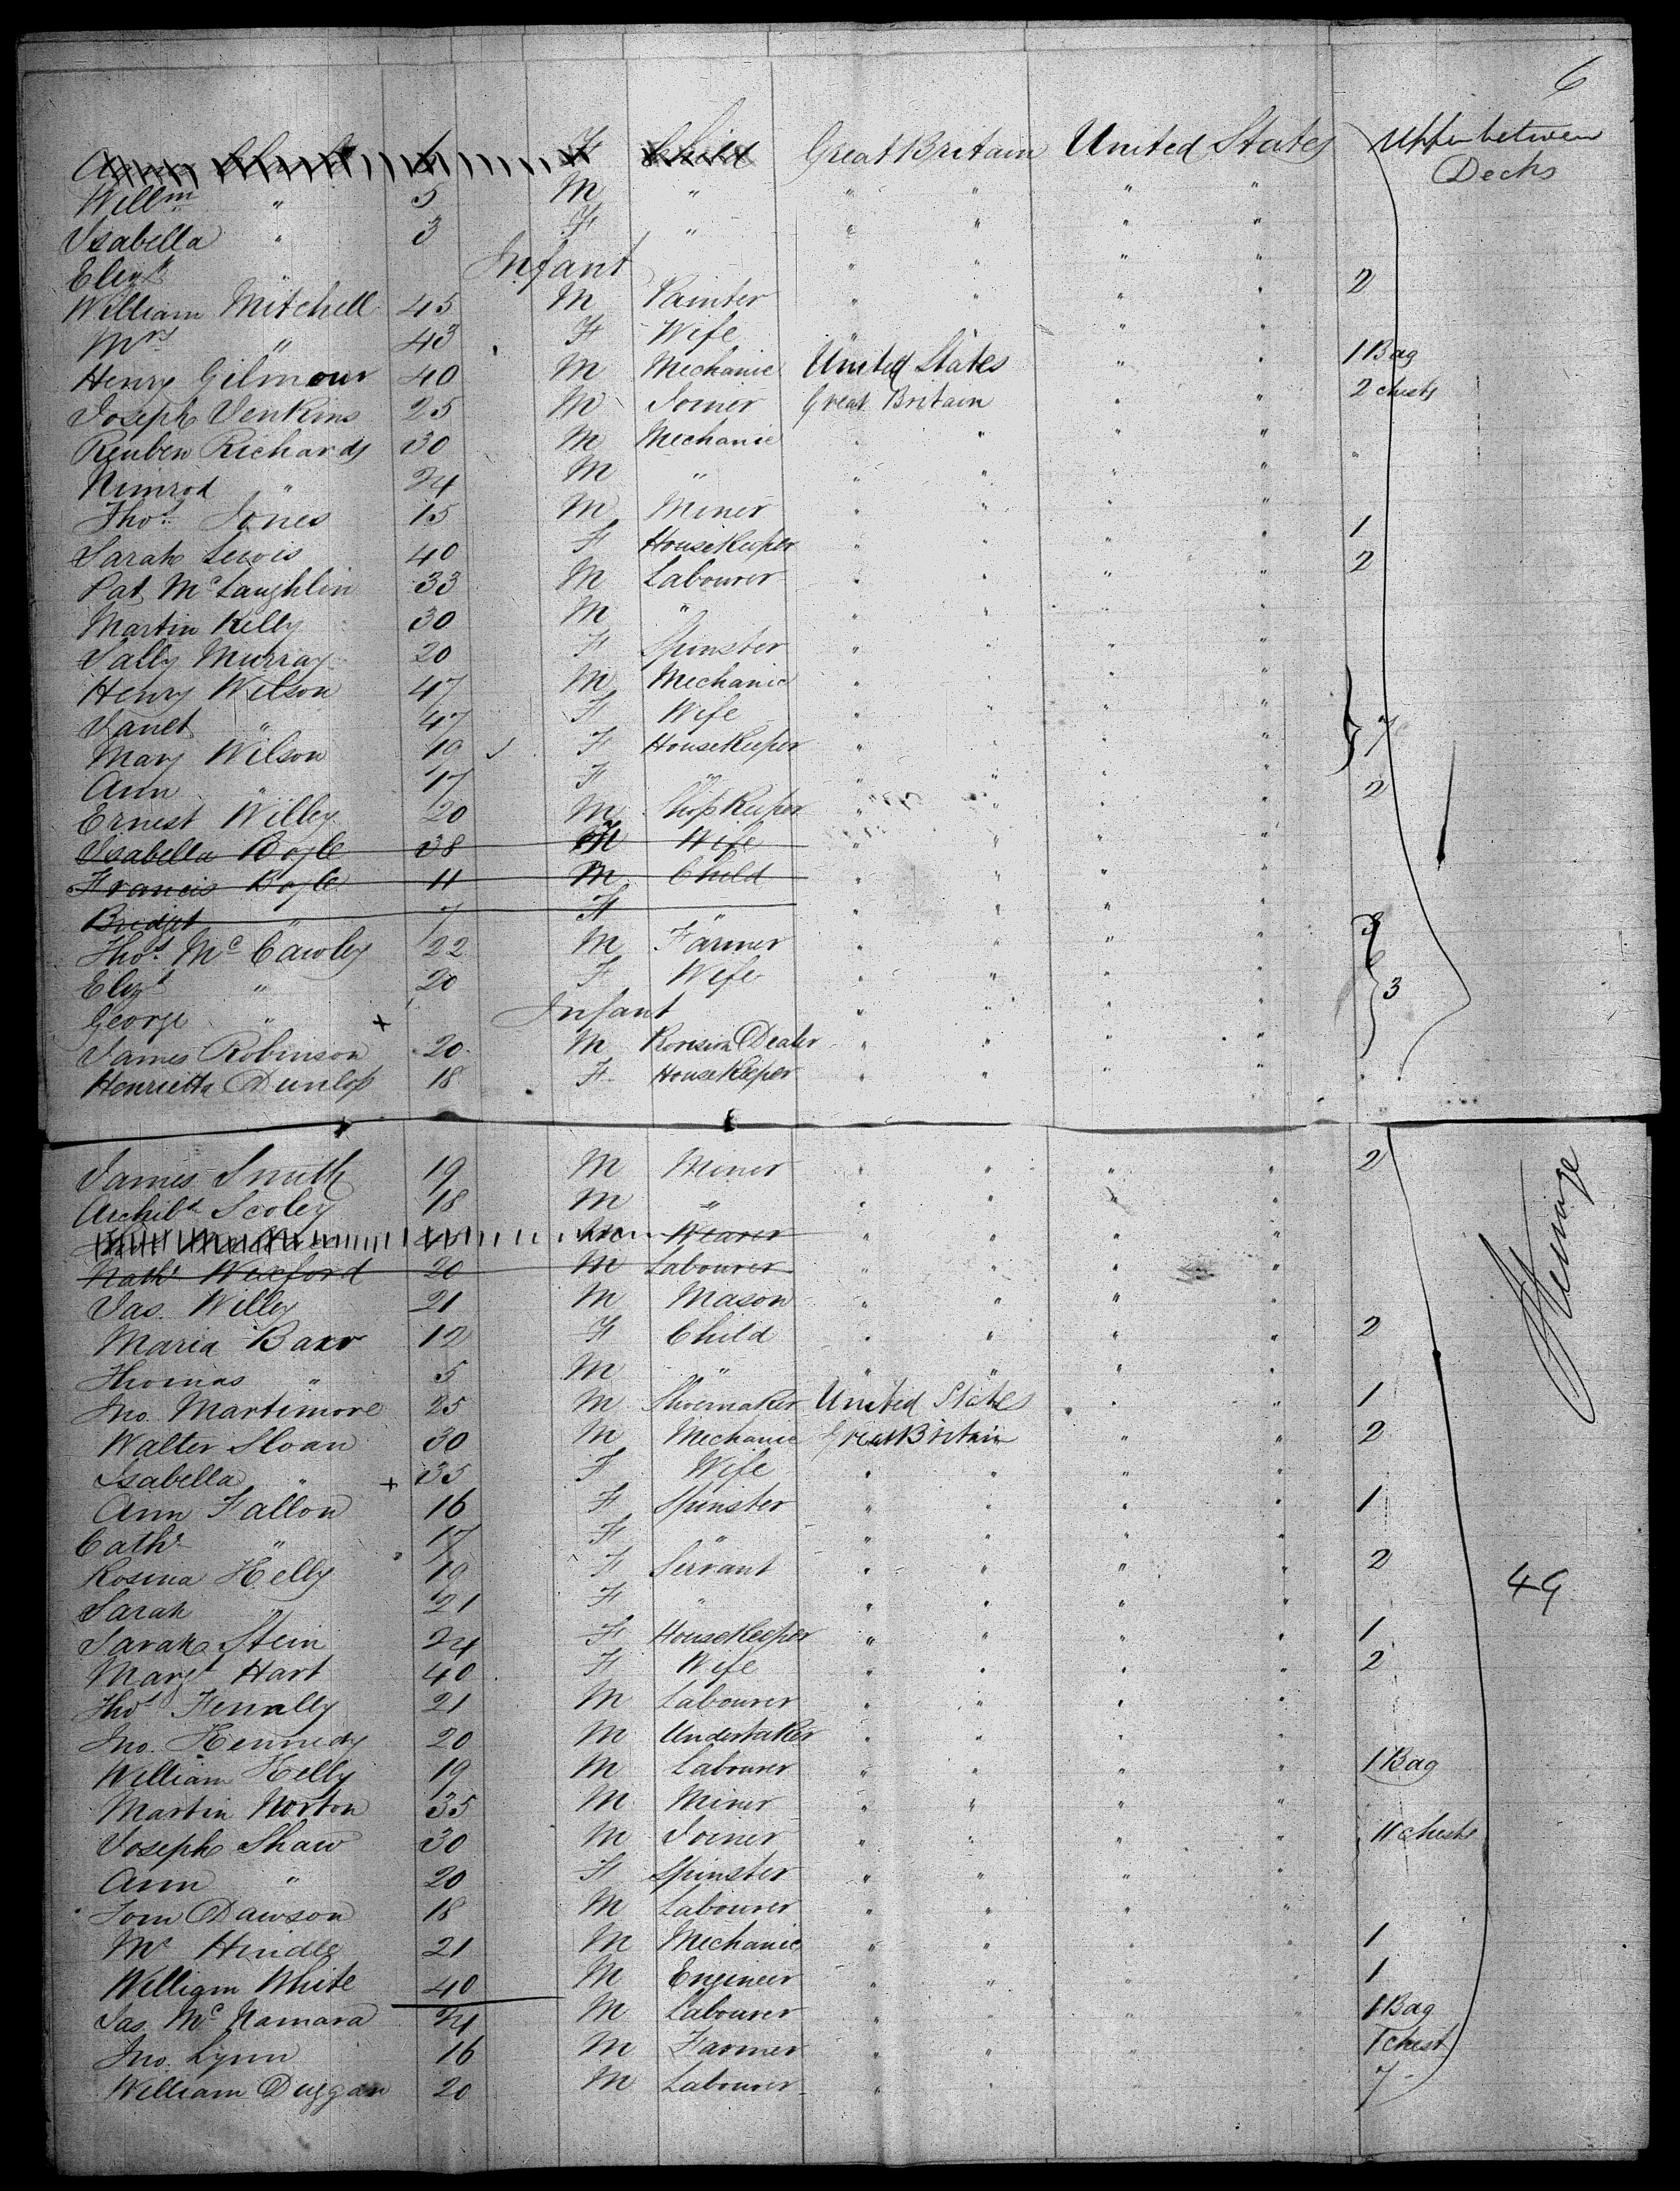 6
F Child Great Britain United States Upper between
Decks
Willm " 5 M " " " "
Isabella " 3 F " " " " "
Elizt " Infant " " " "
William Mitchell 45 M Painter " " " " 2
Mrs " 43 F Wife " " "
Henry Gilmour 40 M Mechanic United States " " 1 Bag
Joseph Jenkins 25 M Joiner Great Britain " " 2 chests
Reuben Richards 30 M Mechanic " " " " "
Nimrod " 24 M " " " " "
Thos. Jones 15 M Miner " " " "
Sarah Lewis 40 F HouseKeeper " " " " 1
Pat McLaughlin 33 M Labourer " " " " 2
Martin Kelly 30 M " " " " "
Sally Murray 20 F Spinster " " " "
Henry Wilson 47 M Mechanic " " " "
Janet " 47 F Wife " " " "
Mary Wilson 19 F HouseKeeper " " " " 7
Ann " 17 F " " " " "
Ernest Willey 20 M ShopKeeper " " " " 2
Isabella Boyle 38 F Wife " " "
Francis Boyle 11 M Child " " " "
Bridget " 7 F " " " " "
Thos. McCawley 22 M Farmer " " " "
Elizt " 20 F Wife " " " " 3
George " Infant " " " "
James Robinson 20 M Provision Dealer " " " "
Henrietta Dunlop 18 F HouseKeeper " " " "
James Smith 19 M Miner " " " " 2
Archibd Scoley 18 M " " " " "
M Weaver " " " "
Nathl Wexford 20 M Labourer " " "
Jas. Willey 21 M Mason " " " "
Maria Barr 12 F Child " " " " 2
Thomas " 5 M " " " " "
Jno. Martimore 25 M Shoemaker United States " " 1
Walter Sloan 30 M Mechanic Great Britain " " 2
Isabella " + 35 F Wife " " " "
Ann Fallon 16 F Spinster " " " " 1
Cathe " 17 F " " " " "
Rosina Kelly 19 F Servant " " " " 2
Sarah " 21 F " " " " "
Sarah Stein 24 F HouseKeeper " " " " 1
Margt Hart 40 F Wife " " " " 2
Thos Fenally 21 M Labourer " " " "
Jno. Kennedy 20 M Undertaker " " " "
William Kelly 19 M Labourer " " " " 1 Bag
Martin Norton 35 M Miner " " " "
Joseph Shaw 30 M Joiner " " " " 11 chests
Ann " 20 F Spinster " " " "
Tom Dawson 18 M Labourer " " " "
Mr Hindle 21 M Mechanic " " " " 1
William White 40 M Engineer " " " 1
Jas. McNamara 24 M Labourer " " " " 1 Bag
Jno. Lynn 16 M Farmer " " " " 1 chest
William Duggan 20 M Labourer " " " " 7
Steerage
49